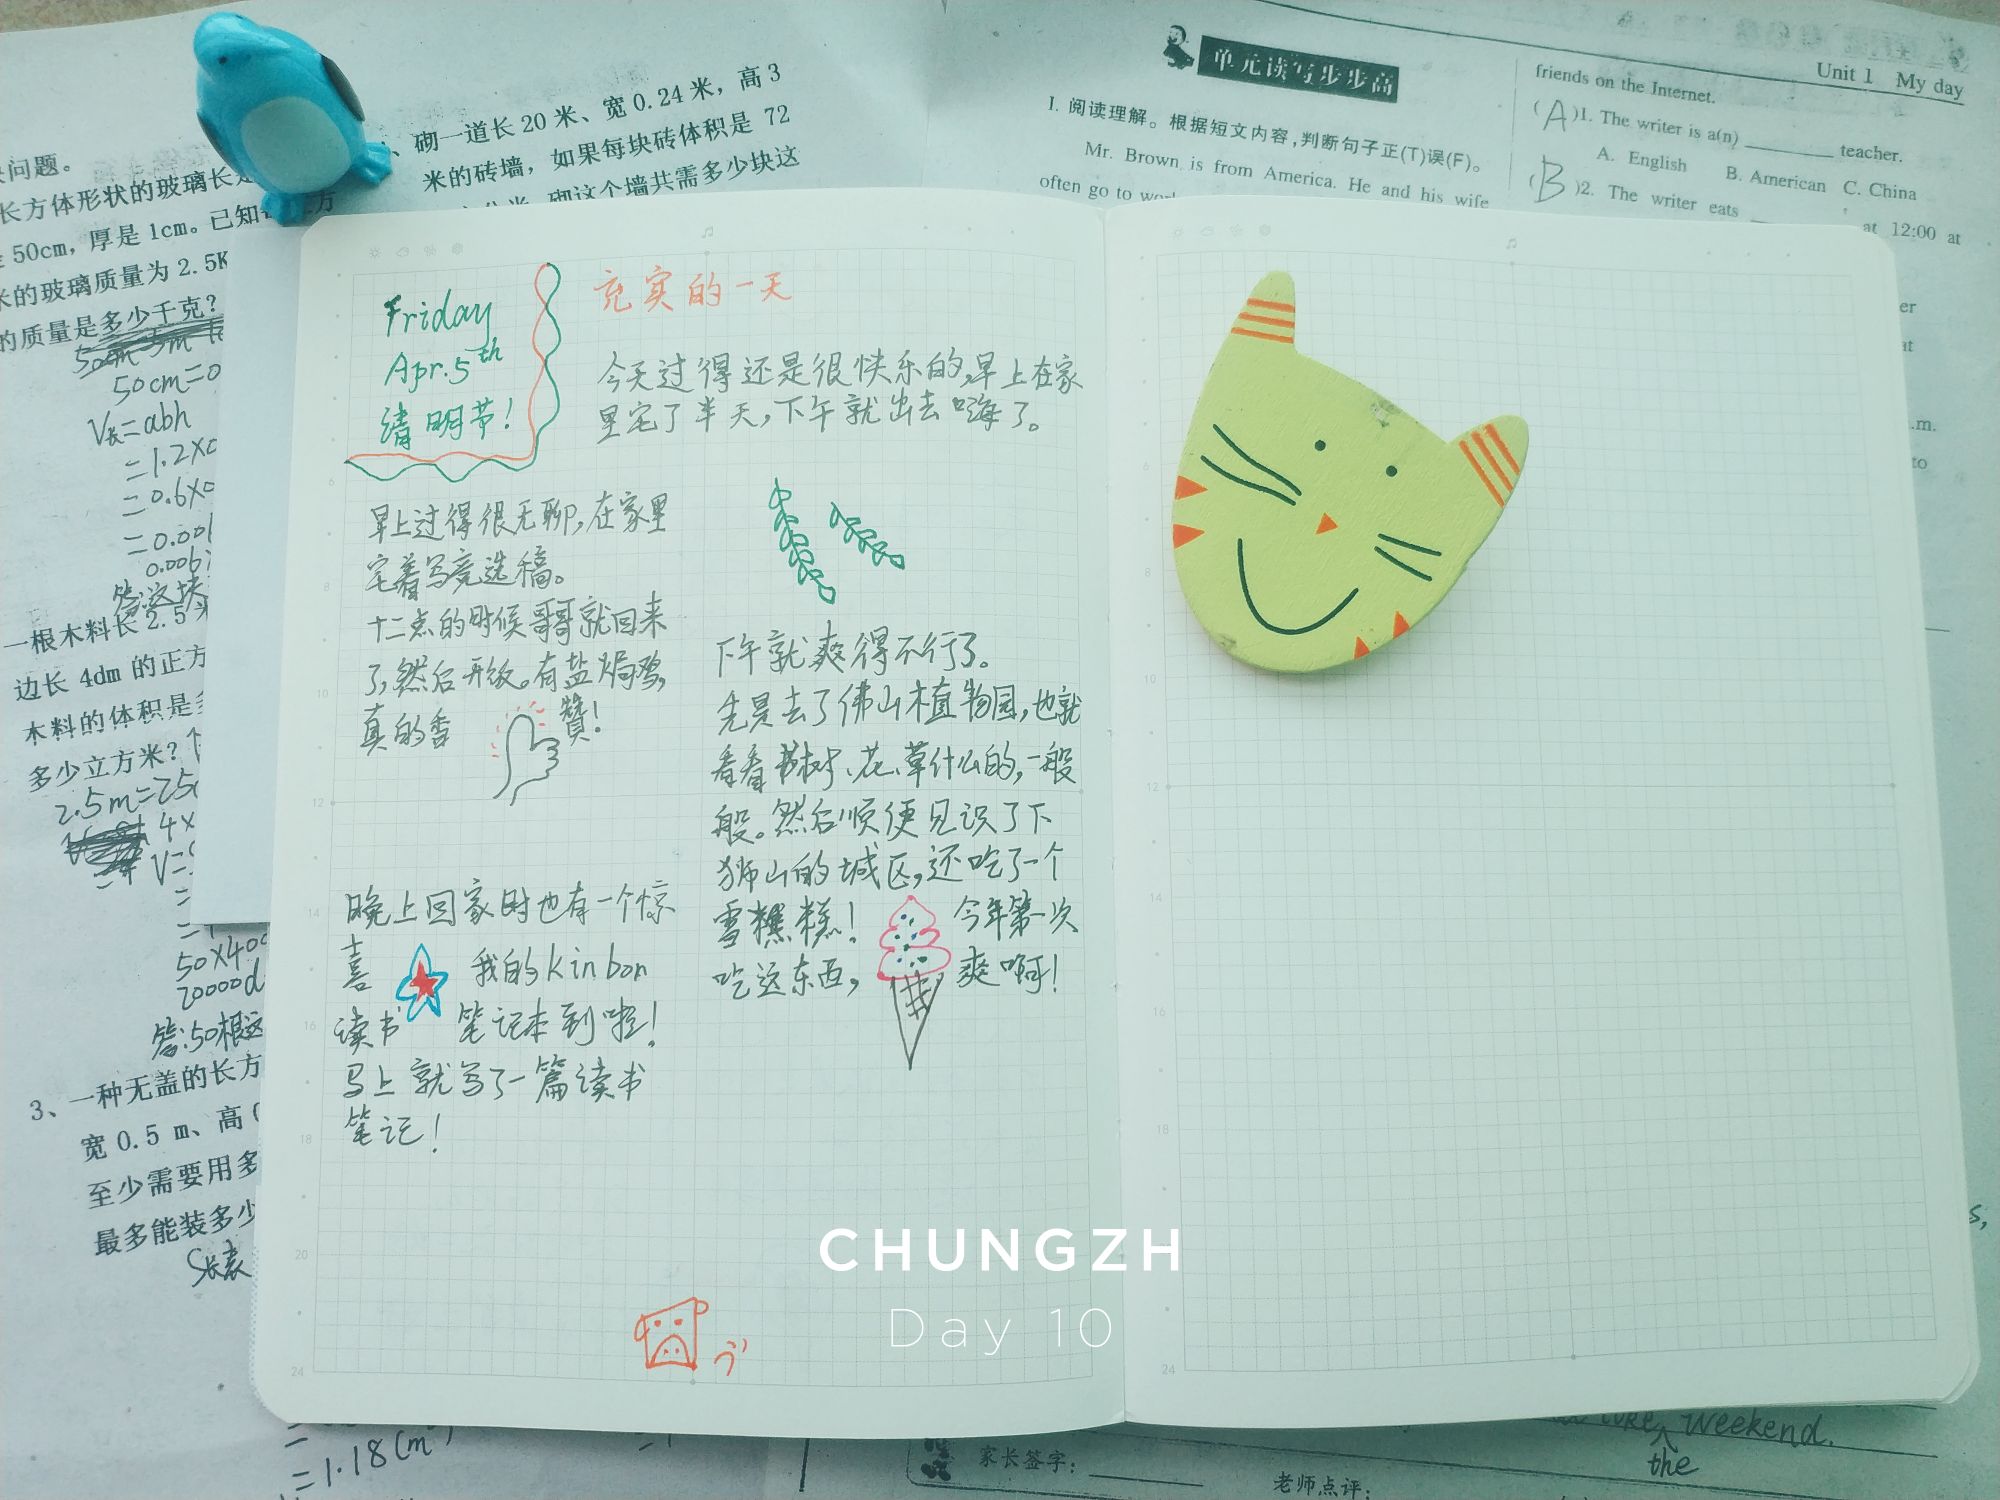 问题。
长方体形状的玻璃长是
50cm，厚是1cm。已知
米的玻璃质量为2.5K
的质量是多少千克？
50cm=0
V长=abh
=1.2×0
=0.6×0
=0.006
答:这块
一根木料长2.5米
边长4dm的正方
木料的体积是
多少立方米？
2.5m=25
4×
V=
50×400
20000d
答:50根这
3、一种无盖的长方
宽0.5 m、高0
至少需要用多
最多能装多少
S长表
=1.18(m²)
砌一道长20米、宽0.24米，高3
米的砖墙，如果每块砖体积是72
砌这个墙共需多少块这
单元读写步步高
I. 阅读理解。根据短文内容，判断句子正(T)误(F)。
Mr. Brown is from America. He and his wife
often go to
Unit 1 My day
friends on the Internet.
(A)1. The writer is a(n) ________ teacher.
A. English B. American C. China
(B)2. The writer eats
at 12:00 at
er
at
.m.
to
Friday
Apr.5th
清明节!
充实的一天
今天过得还是很快乐的,早上在家
里宅了半天,下午就出去嗨了。
早上过得很无聊,在家里
宅着写竞选稿。
十二点的时候哥哥就回来
了,然后开饭。有盐焗鸡,
真的香 赞!
下午就爽得不行了。
先是去了佛山植物园,也就
看看树、花、草什么的,一般
般。然后顺便见识了下
狮山的城区,还吃了一个
雪糕! 今年第一次
吃这东西, 爽啊!
晚上回家时也有一个惊
喜 我的kinbor
读书 笔记本到啦!
马上就写了一篇读书
笔记!
CHUNGZH
Day 10
weekend.
the
家长签字:
老师点评: